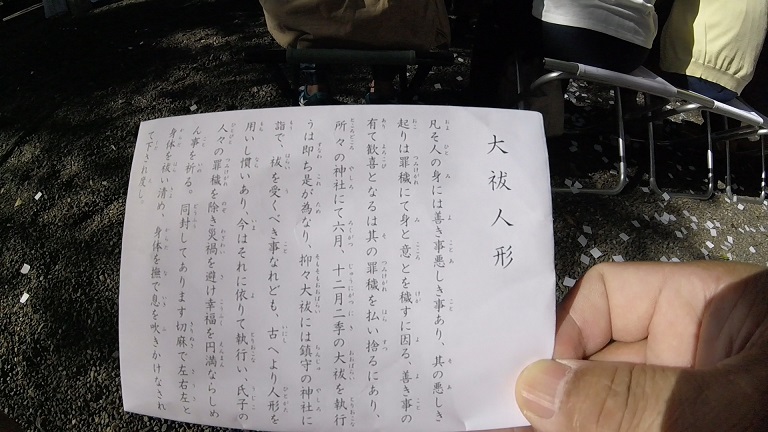 大祓人形
凡そ人の身には善き事悪しき事あり、其の悪しき
起りは罪穢にて身と意とを穢すに因る、善き事の
有て歓喜となるは其の罪穢を払い捨るにあり、
所々の神社にて六月、十二月二季の大祓を執行
うは即ち是が為なり、抑々大祓には鎮守の神社に
詣で、祓を受くべき事なれども、古へより人形を
用いし慣いあり、今はそれに依りて執行い、氏子の
人々の罪穢を除き災禍を避け幸福を円満ならしめ
ん事を祈る。同封してあります切麻で左右左と
身体を祓い清め、身体を撫で息を吹きかけなされ
て下され度し。